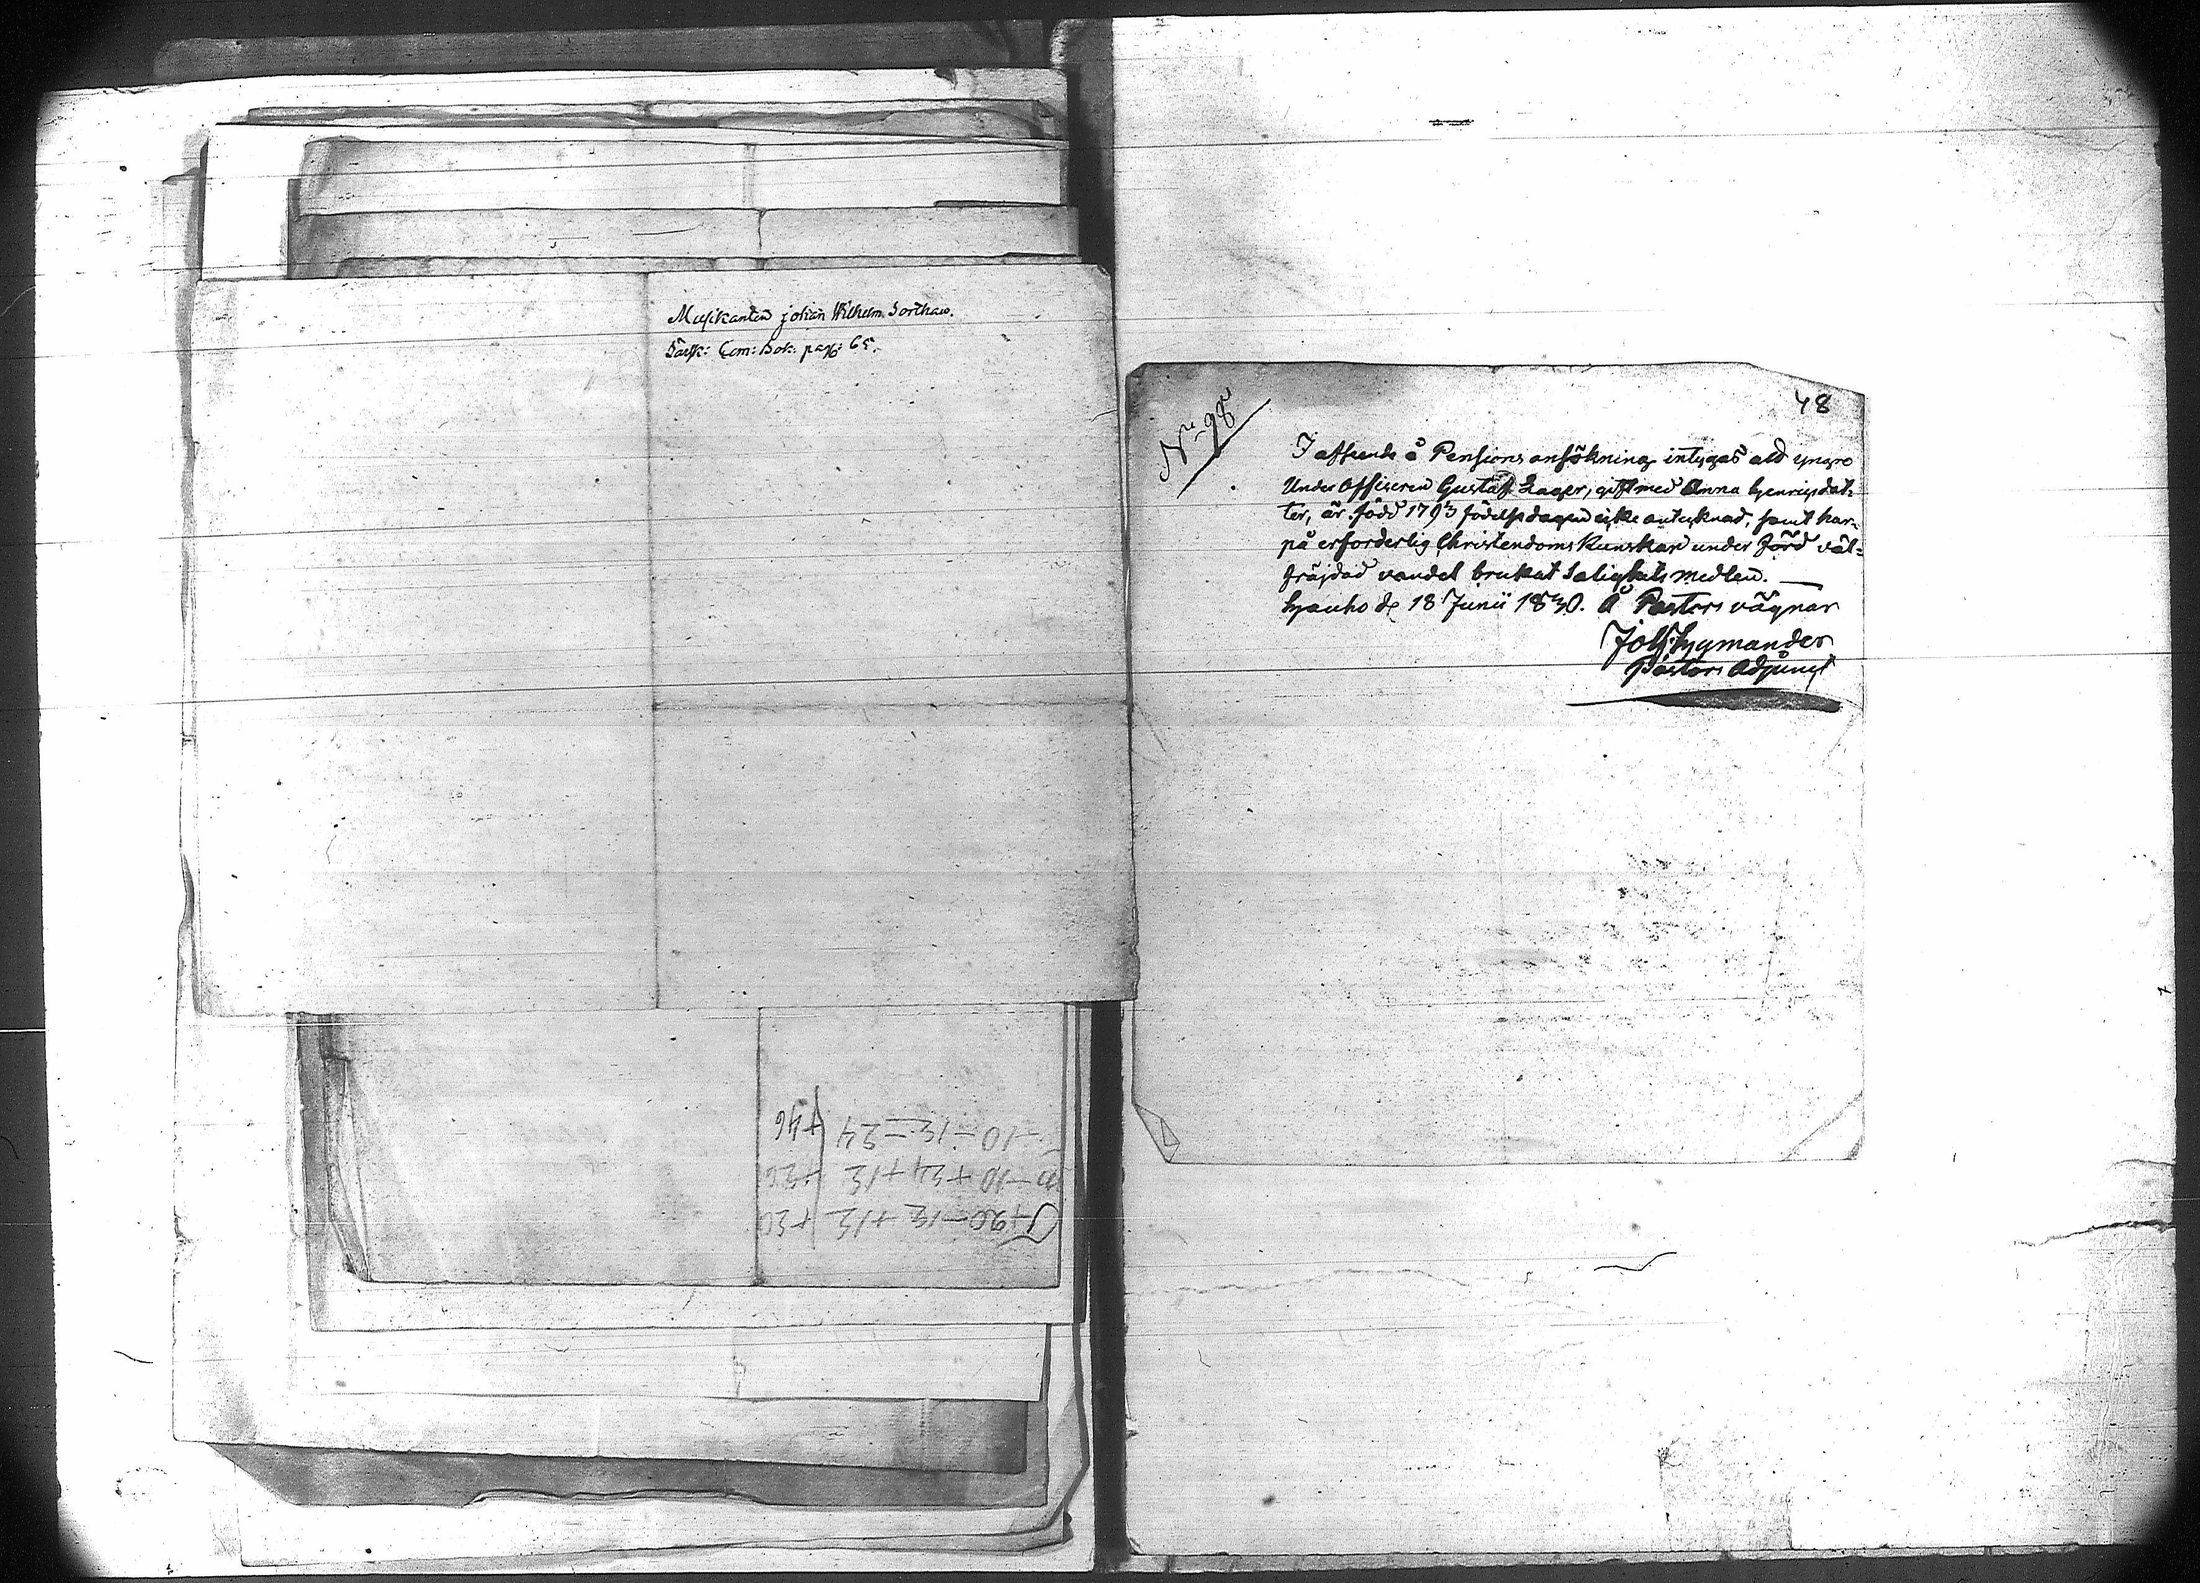 Musikanten johan Wilhelm
Com: Bok: pag: 65.
48
No 98
I afseende å Pensions ansökning intygas att yngre
Under Officeren Gustaf Lager, gift med Anna Henrigsdot-
ter, är född 1793 födelsedagen icke anteknad, samt har
på erforderlig Christendoms Kunskap under förd väl-
fräjdad vandel brukat Salighets medlen.
d. 18 Junii 1830. Å Pastors vägnar
Joh: Hymander
Pastors Adjunct
+20-12+12 +20
-10+24+12 +26
-10-12-24 +46